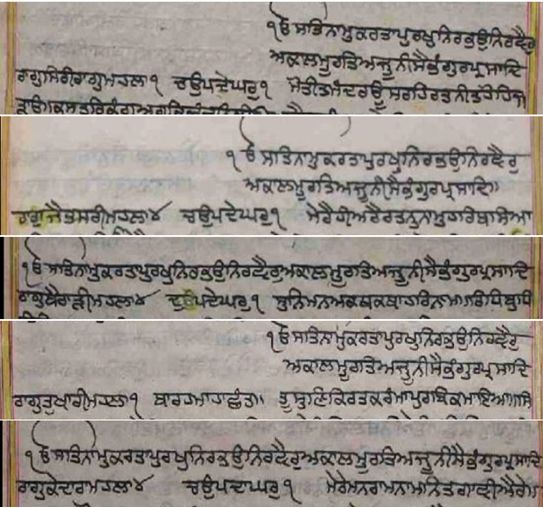 ੧ਓ ਸਤਿਨਾਮੁਕਰਤਾਪੁਰਖੁਨਿਰਭਉਨਿਰਵੈਰੁ
ਅਕਾਲਮੂਰਤਿਅਜੂਨੀਸੈਭੰਗੁਰਪ੍ਰਸਾਦਿ
ਰਾਗੁਸਿਰੀਰਾਗੁਮਹਲਾ੧ ਚਉਪਦੇਘਰੁ੧ ਮੋਤੀਤਮੰਦਰਊਸਰਹਿਰਤਨੀਤਹੋਹਿਜ
੧ਓ ਸਤਿਨਾਮੁਕਰਤਾਪੁਰਖੁਨਿਰਭਉਨਿਰਵੈਰੁ
ਅਕਾਲਮੂਰਤਿਅਜੂਨੀਸੈਭੰਗੁਰਪ੍ਰਸਾਦਿ॥
ਰਾਗੁਜੈਤਸਰੀਮਹਲਾ੪ ਚਉਪਦੇਘਰੁ੧ ਮੇਰੈਹੀਅਰੈਰਤਨੁਨਾਮੁਹਰਿਬਸਿਆ
੧ਓ ਸਤਿਨਾਮੁਕਰਤਾਪੁਰਖੁਨਿਰਭਉਨਿਰਵੈਰੁਅਕਾਲਮੂਰਤਿਅਜੂਨੀਸੈਭੰਗੁਰਪ੍ਰਸਾਦਿ
ਰਾਗੁਬੈਰਾੜੀਮਹਲਾ੪ ਦੁਪਦੇਘਰੁ੧ ਸੁਨਿਮਨਅਕਥਕਥਾਹਰਿਨਾਮ
੧ਓ ਸਤਿਨਾਮੁਕਰਤਾਪੁਰਖੁਨਿਰਭਉਨਿਰਵੈਰੁ
ਅਕਾਲਮੂਰਤਿਅਜੂਨੀਸੈਭੰਗੁਰਪ੍ਰਸਾਦਿ
ਰਾਗੁਤੁਖਾਰੀਮਹਲਾ੧ ਬਾਰਹਮਾਹਾਛੰਤ॥ ਤੂਸੁਣਿਕਿਰਤਕਰੰਮਾਪੁਰਬਿਕਮਾਇਆ
੧ਓ ਸਤਿਨਾਮੁਕਰਤਾਪੁਰਖੁਨਿਰਭਉਨਿਰਵੈਰੁਅਕਾਲਮੂਰਤਿਅਜੂਨੀਸੈਭੰਗੁਰਪ੍ਰਸਾਦਿ
ਰਾਗੁਕੇਦਾਰਾਮਹਲਾ੪ ਚਉਪਦੇਘਰੁ੧ ਮੇਰੇਮਨਰਾਮਨਾਮਨਿਤਗਾਵੀਐਰੇ॥